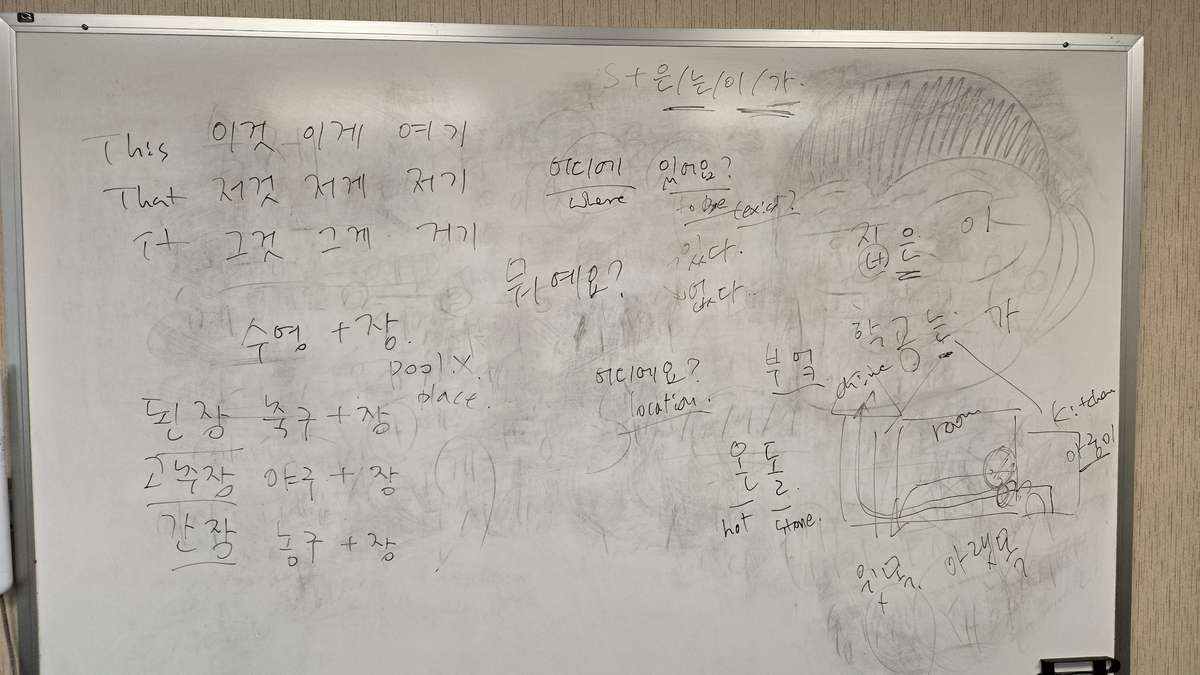 S + 은/는/이/가.
This 이것 이게 여기
That 저것 저게 저기
It 그것 그게 거기
어디에 있어요?
where to be (exist?
있다.
없다..
뭐예요?
집은 이
(ㅂ)
학교는 가
수영 + 장.
pool X.
place.
된장 축구 + 장
고추장 야구 + 장
간장 농구 + 장
어디에요?
location.
부엌
room
kitchen
온돌.
hot stone.
윗목. 아랫목